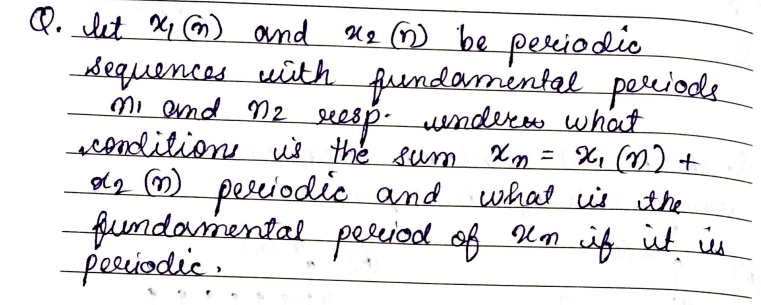 Q. let x₁(n) and x₂(n) be periodic
sequences with fundamental periods
n₁ and n₂ resp. under what
conditions is the sum xn = x₁(n) +
x₂(n) periodic and what is the
fundamental period of xn if it is
periodic.